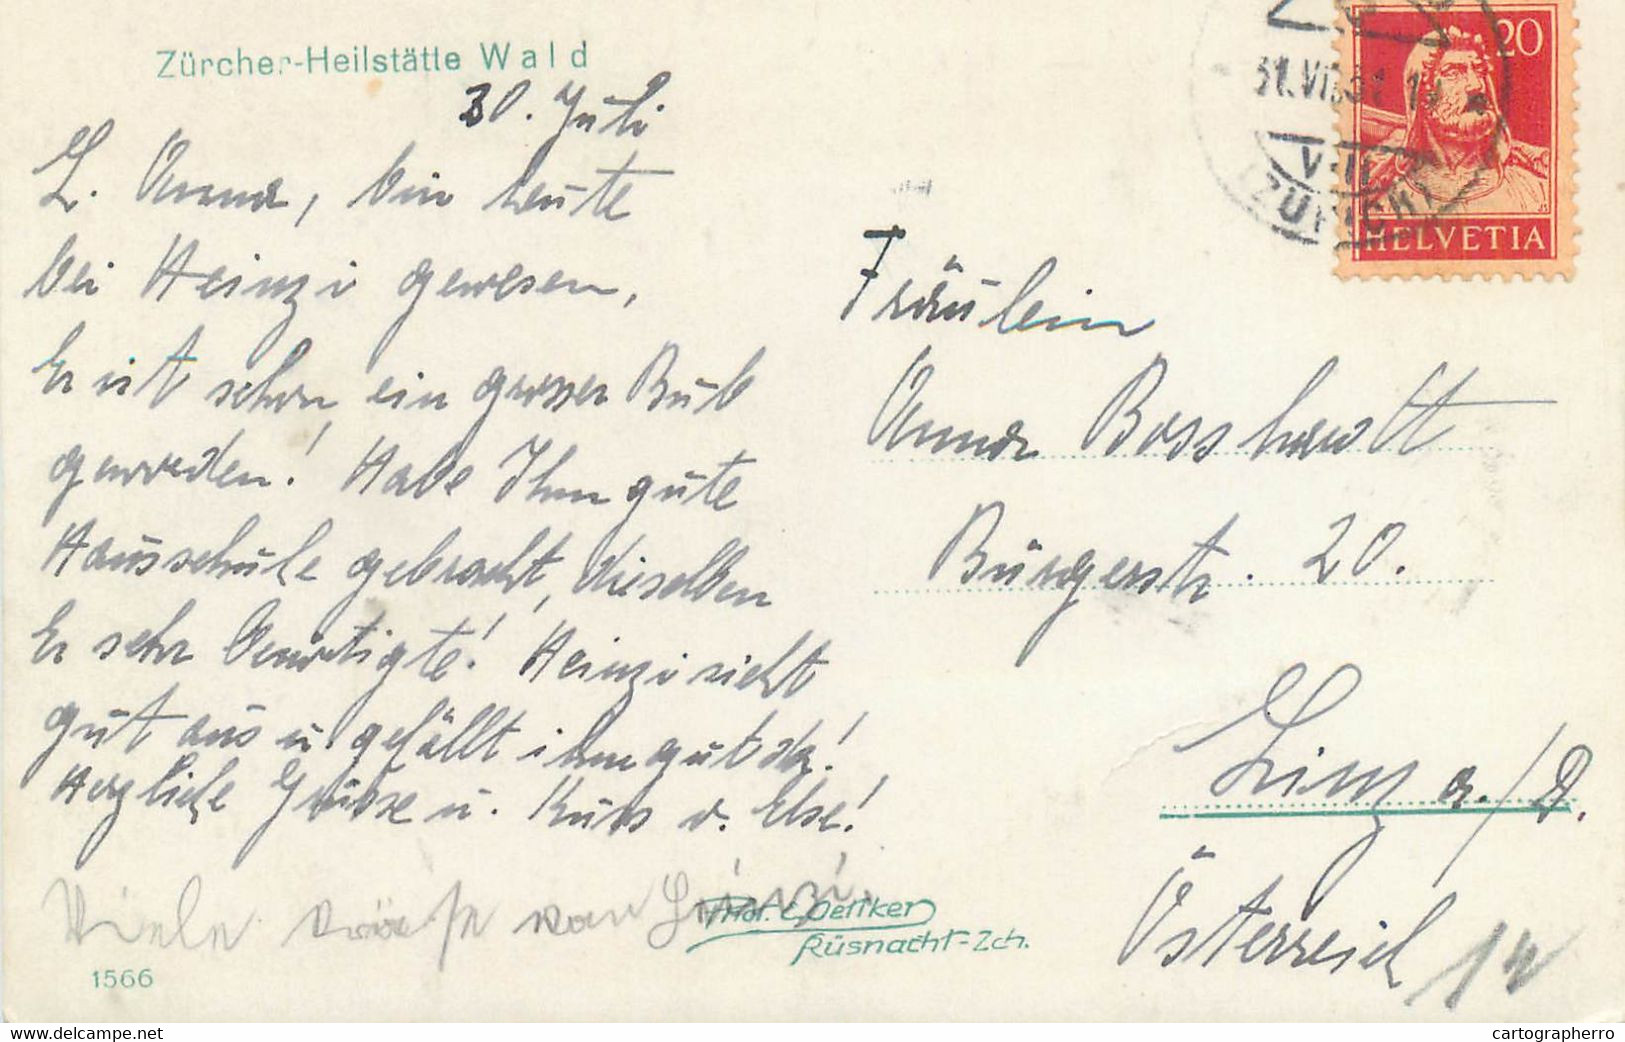 Zürcher-Heilstätte Wald
30. Juli
L. Anna, bin heute
bei Heinzi gewesen,
Er ist schon ein grosser Bub
geworden! Habe Ihm gute
Hausschule gebracht, dieselben
Er sehr benötigte! Heinzi sieht
gut aus u. gefällt ihm gut da!
Herzliche Grüsse u. Kuss v. Else!
Viele von
1566
Phot. C. Oetiker
Küsnacht-Zch.
20
HELVETIA
31.VII.31.
ZÜRICH
Fräulein
Anna Bosshardt
Bürgerstr. 20.
Linz a./D.
Österreich
www.delcampe.net
cartographerro